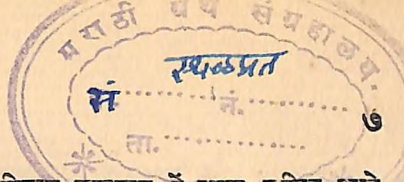 मराठी ग्रंथ संग्रहालय.
स्थळप्रत
सं............नं............
ता...............
७